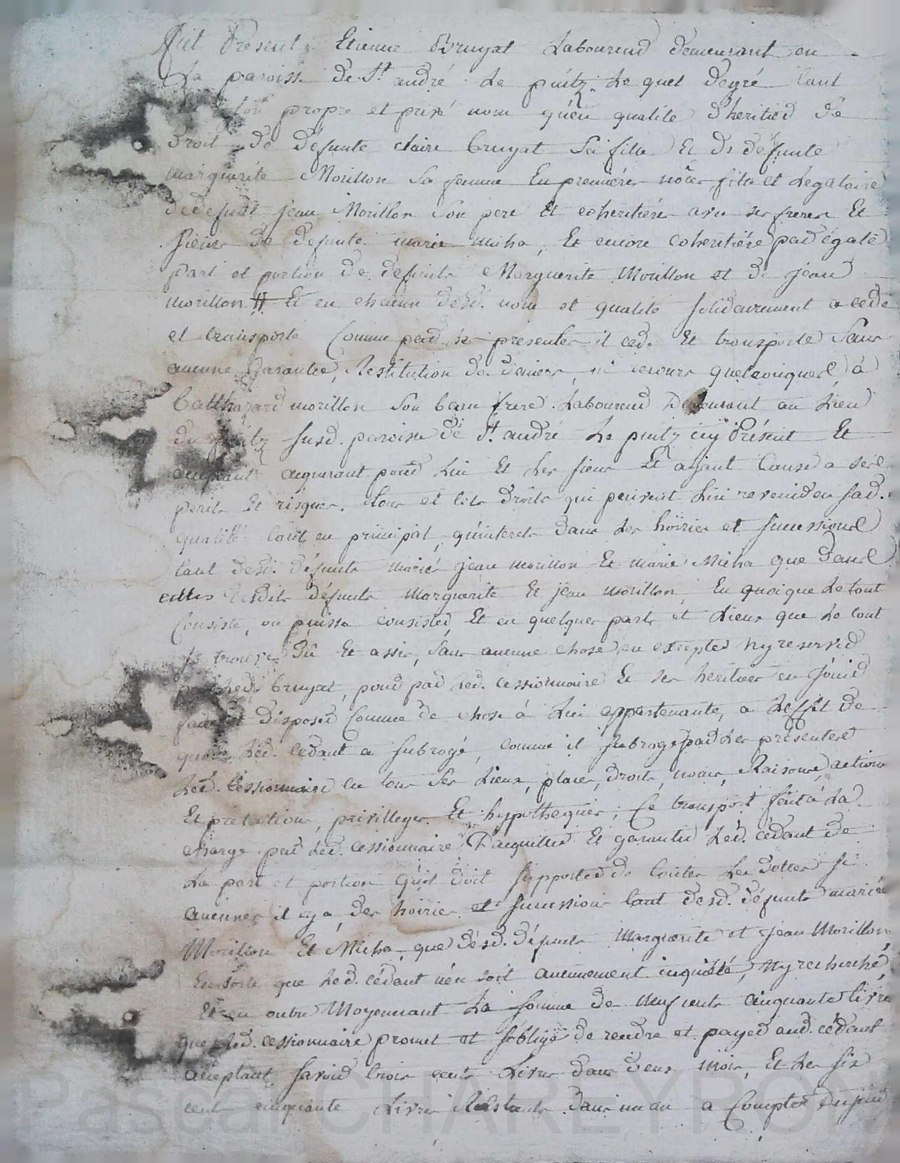 fut Present Etienne Bruyat Laboureur demeurant en
La paroisse de St. andré Le puitz, Lequel de gré tant
son propre et privé nom qu'en qualité d'heritier de
droit de défunte claire bruyat sa fille Et de défunte
marguerite Morillon sa femme En premieres nôces, fille et Legataire
de defunt jean Morillon son pere Et coheritiére avec ses freres Et
sieurs de defunte marie micha, Et encore coheritiére par égale
part et portion de defunts Marguerite Morillon et de jean
morillon Et en chacun desd. nom et qualité solidairement a cedé
et transporté Comme par ses presentes il cede Et transporte Sans
aucune Garantie, Restitution de deniers, ni erreurs quelconques à
Balthazard morillon son beau frere Laboureur Demeurant au Lieu
du puitz susd. paroisse de St. andré Le puitz icy Présent Et
acceptant aquerant pour Lui Et Les siens Et ayant Cause a ses
perils Et risques, tous et tels droits qui peuvent Lui revenir en sad.
qualité tant en principal, qu'interets dans Les hoiries et successions
tant desd. défunts mariés jean morillon Et marie Micha que dans
celles desdits défunts Marguerite Et jean morillon, En quoique Le tout
Consiste, ou puisse consister, Et en quelques parts et Lieux que Le tout
se trouve Dû Et assis, sans aucune chose en excepter ny reserver
led. bruyat, pour par led. cessionnaire Et ses heritiers en Jouir
faire et disposer Comme de chose à Lui appartenante, a L'effet de
quoi Led. Cedant a subrogé, comme il subroge par Les présentes
Led. Cessionnaire en tous ses Lieux, place, droits, noms, Raisons, actions
Et prétentions, privilleges Et hypotheques; Ce transport fait à La
charge par Led. cessionnaire D'aquitter Et garantir Led. cédant de
La part et portion qu'il doit supporter de toutes Les dettes si
aucunes il y a des hoiries et succession tant desd. défunts mariés
Morillon Et Micha, que desd. défunts Marguerite et Jean Morillon
En sorte que Led. cédant n'en soit aucunement inquiété, Ny recherché,
Et en outre Moyennant La somme de neuf cents cinquante livres
que Led. cessionnaire promet et s'oblige de rendre et payer aud. cédant
acceptant, savoir trois cents Livres dans deux mois, Et Les six
cents cinquante Livres Restants dans un an a Compter du jour
Pascal CHAREYRON